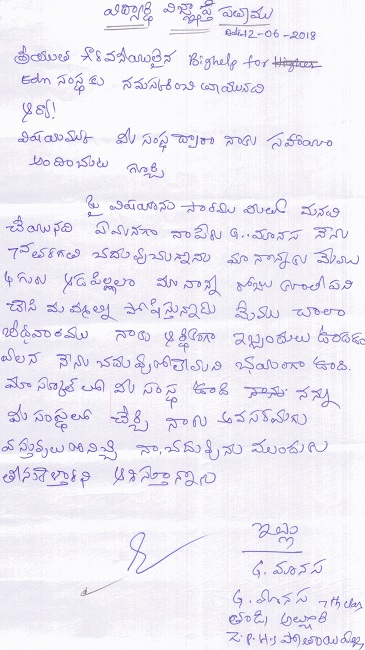 విద్యార్థి విజ్ఞప్తి పత్రము
Date 12-06-2018
శ్రీయుత గౌరవనీయులైన Bighelp for
Edn సంస్థకు నమస్కరించి వ్రాయునది
ఆర్యా!
విషయము మీ సంస్థ ద్వారా నాకు సహాయం
అందించుట గూర్చి
పై విషయాను సారము మీలో మనవి
చేయునది ఏమనగా నాపేరు G. మానస నేను
7వతరగతి చదువుచున్నాను మా నాన్నకు మేము
4గురు ఆడపిల్లలం మా నాన్న రోజు కూలీ పని
చేసి మమ్మల్ని పోషిస్తున్నాడు మేము చాలా
బీదవారము నాకు ఆర్థికంగా ఇబ్బందులు ఉండడం
వలన నేను చదువుకోలేమని భయంగా ఉంది.
మా స్కూల్ లో మీ సంస్థ ఉంది నన్ను
మీ సంస్థలో చేర్చి నాకు అవసరమగు
వస్తువులు ఇచ్చి నా చదువును ముందుకు
తీసుకెళ్తారని ఆశిస్తున్నాను
ఇట్లు
G. మానస
G. మానస 7th class
తండ్రి
Z.P.H.S